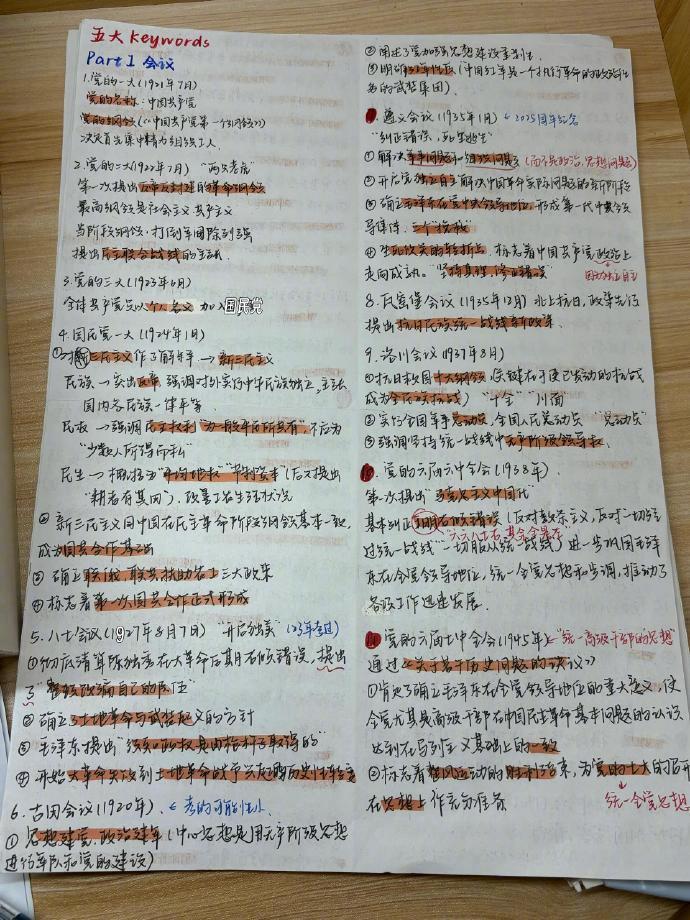 五大 keywords
Part 1 会议
1.党的一大(1921年7月)
党的名称:中国共产党
党的纲领(《中国共产党第一个纲领》)
决定首先集中精力组织工人
2.党的二大(1922年7月) "两火春底"
第一次提出反帝反封建的革命纲领
最高纲领是社会主义共产主义
当阶段纲领:打倒军阀
提出民主联合战线的主张
3.党的三大(1923年6月)
全体共产党员以个人名义加入国民党
4.国民党一大(1924年1月)
①对三民主义作了解释 → 新三民主义
民族→突出反帝 强调对外实行中华民族独立,主张
国内各民族一律平等
民权→强调民主权利"为一般平民所共有",不应为
"少数人所得而私"
民生→概括为"平均地权""节制资本"(后又提出
"耕者有其田"),改善工农生活状况
②新三民主义同中国在民主革命阶段纲领基本一致,
成为国共合作基础
③确立联俄,联共,扶助农工三大政策
④标志着第一次国共合作正式形成
5.八七会议(1927年8月7日) "开启独美" (23年考过)
①彻底清算陈独秀在大革命后期右倾错误,提出
了"整顿改编自己的队伍"
②确立了土地革命与武装起义的方针
③毛泽东提出"须知政权是由枪杆子取得的"
④开始大革命失败到土地革命战争兴起的历史性转变
6.古田会议(1920年). ← 考的可能性小
①思想建党,政治建军(中心思想是用无产阶级思想
进行军队和党的建设)
②阐述了党加强思想建设重要性
③明确红军性质(中国红军是一个执行革命的政治任
务的武装集团).
7.遵义会议(1935年1月) ← 2025周年纪念
"纠正错误,死里逃生"
①解决军事问题和组织问题 (而不是政治,思想问题)
②开启党独立自主解决中国革命实际问题的新阶段
③确立毛泽东在党中央领导地位,形成第一代中央领
导集体.三个"挽救"
④生死攸关的转折点,标志着中国共产党政治上
走向成熟."坚持真理,修正错误" 因为独立自主
8.瓦窑堡会议(1935年12月)北上抗日,政策先行
提出抗日民族统一战线新政策.
9.洛川会议(1937年8月)
①抗日救国十大纲领(关键在于使已发动的抗战
成为全民族抗战) "十全""川面"
②实行全国军事总动员,全国人民总动员 "总动员"
③强调坚持统一战线中无产阶级领导权.
10.党的六届六中全会(1938年)
第一次提出"马克思主义中国化"
基本纠正王明右倾错误(反对教条主义,反对"一切经
过统一战线""一切服从统一战线")进一步巩固毛泽
东在全党领导地位,统一全党思想和步调,推动了
各项工作迅速发展.
11.党的六届七中全会(1945年)←"统一高级干部的思想"
通过《关于若干历史问题的决议》
①肯定了确立毛泽东在全党领导地位的重大意义,使
全党尤其是高级干部在中国民主革命基本问题的认识
达到在马列主义基础上的一致
②标志着整风运动的胜利结束,为党的七大的召开
在思想上作充分准备
统一全党思想